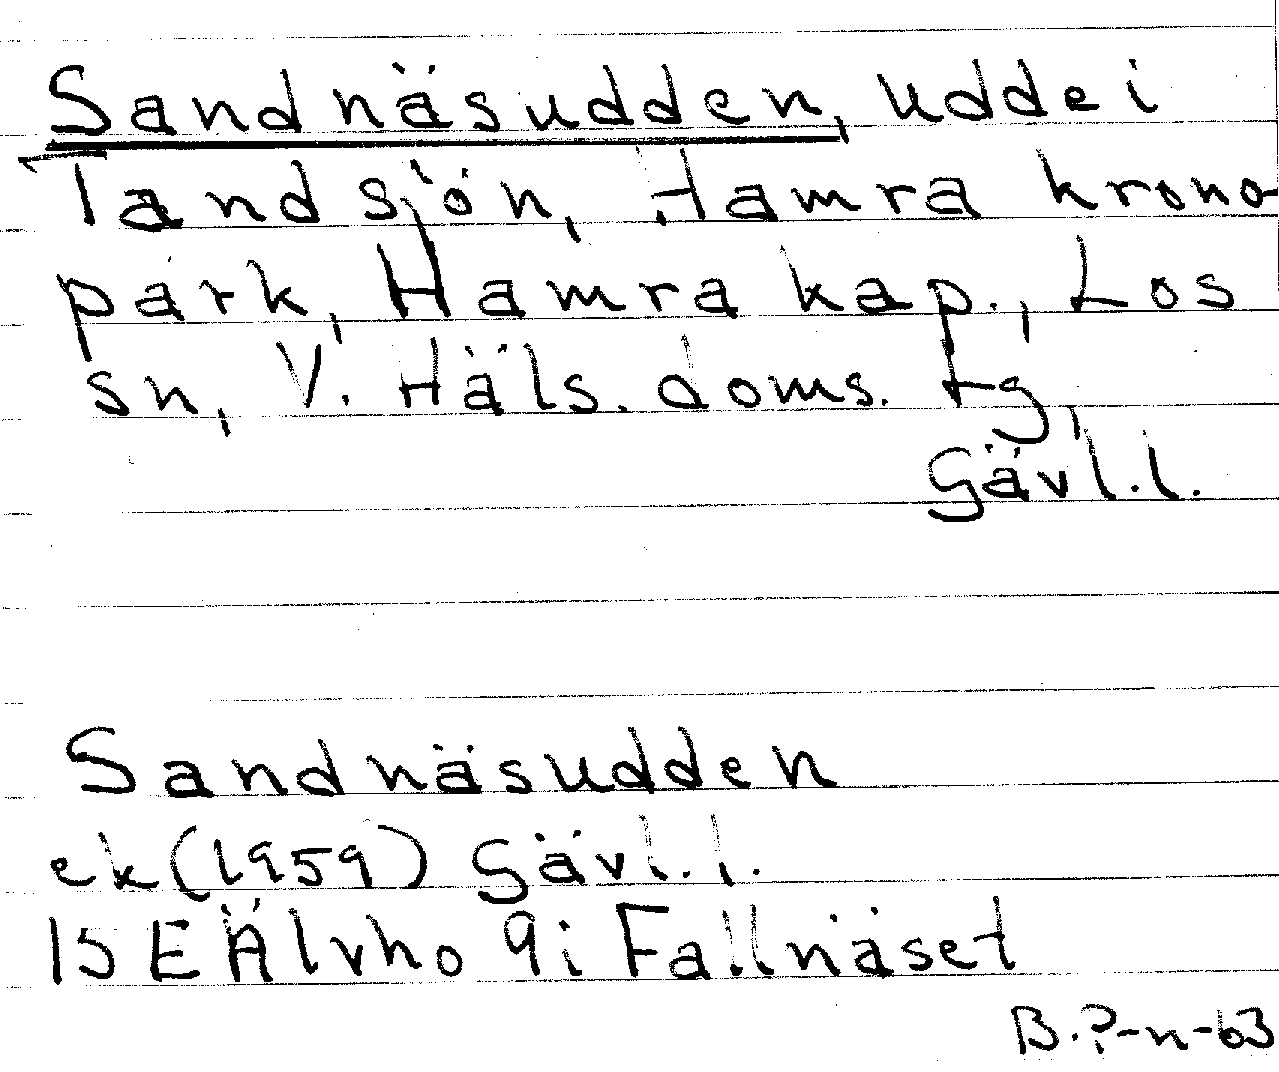 Sandnäsudden, udde i
Tandsjön, Hamra krono-
park, Hamra kap., Los
sn, V. Häls. doms. tg,
Gävl.l.
Sandnäsudden
ek (1959) Gävl.l.
15E Älvho 9i Fallnäset
B.?-n-63